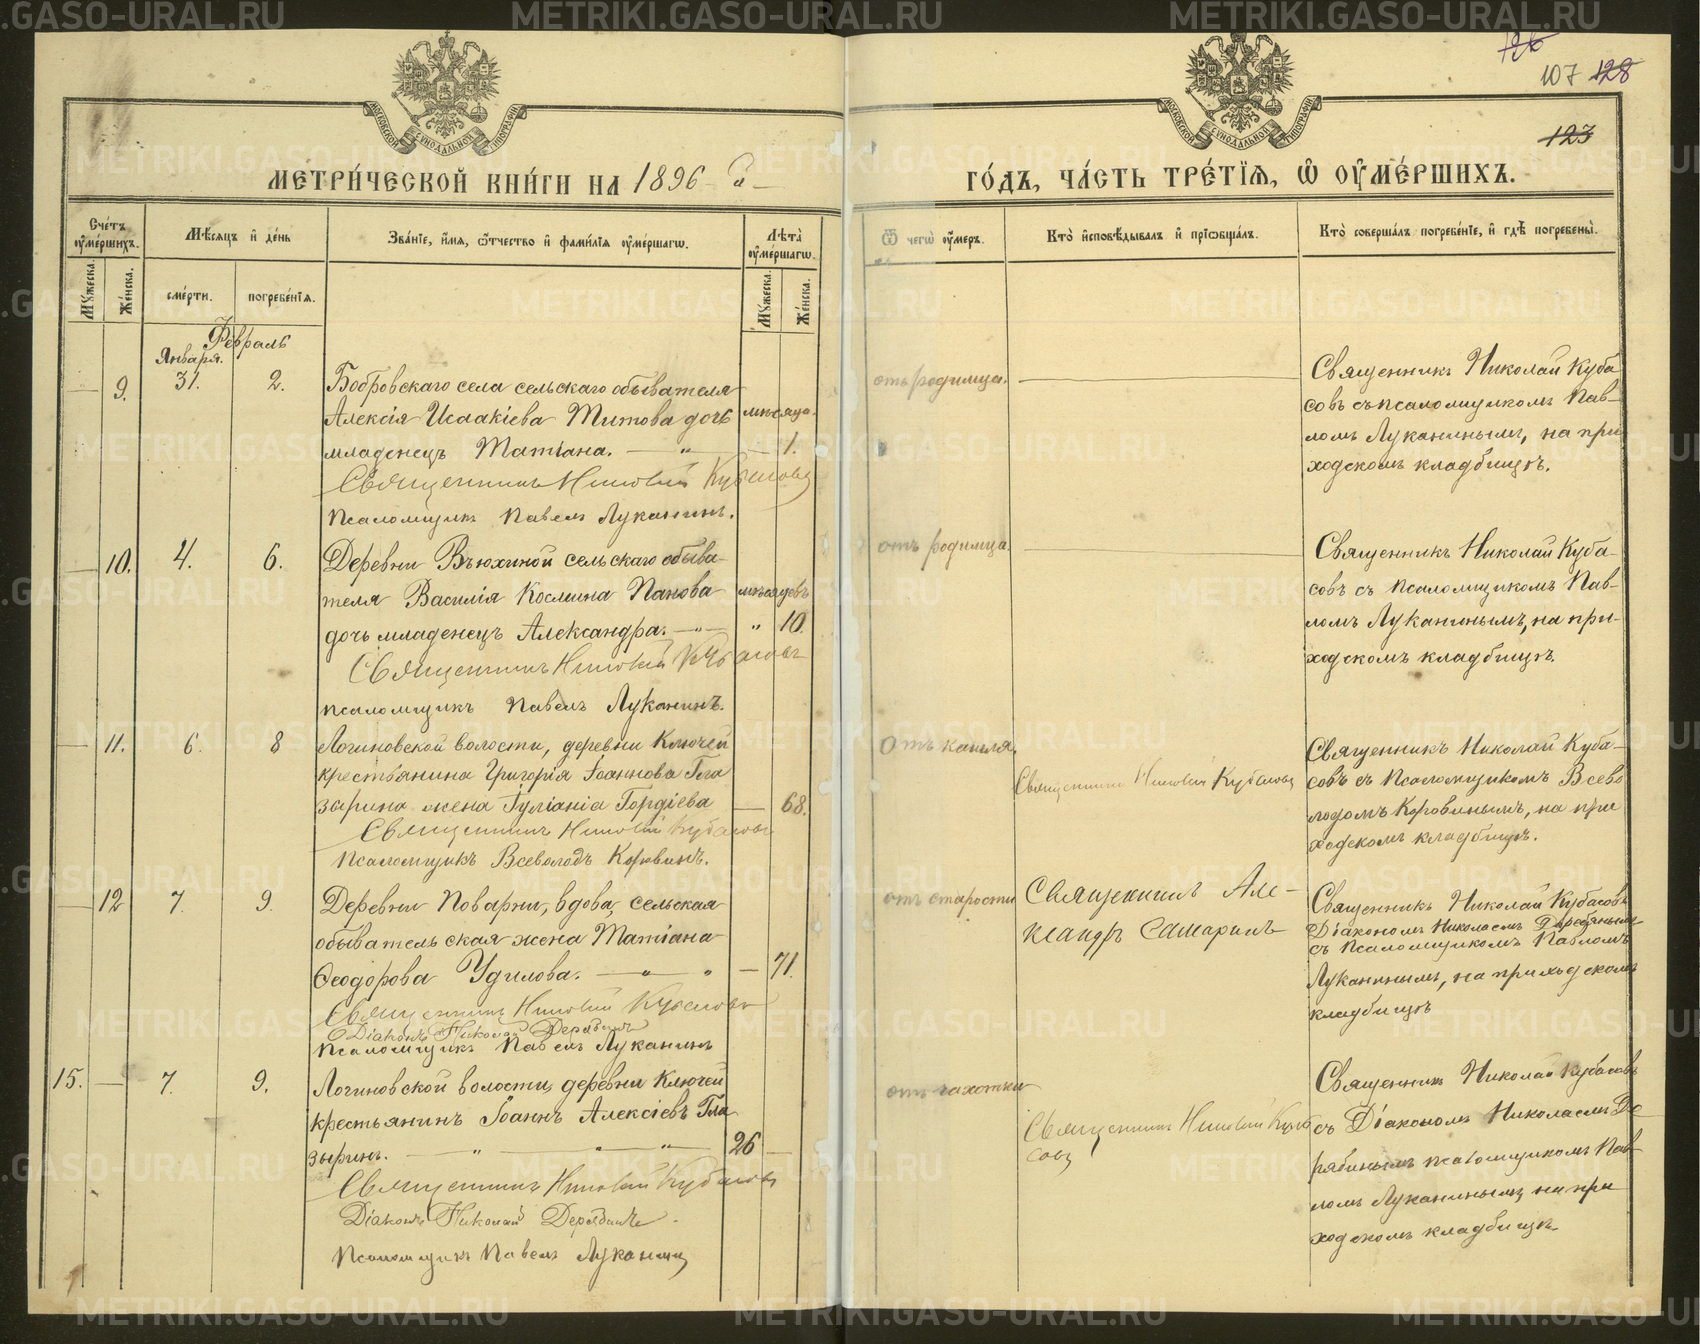 METRIKI.GASO-URAL.RU
126
107 128
123
МОСКОВСКОЙ СѴНОДАЛЬНОЙ ТИПОГРАФІИ
МОСКОВСКОЙ СѴНОДАЛЬНОЙ ТИПОГРАФІИ
МЕТРИ́ЧЕСКОЙ КНИ́ГИ НА 1896 й
ГО́ДЪ, ЧА́СТЬ ТРЕ́ТІѦ, Ѡ ОУМЕ́РШИХЪ.
Сче́тъ оуме́ршихъ.
Мѣ́сяцъ и де́нь
Зва́нїе, и́мя, ѻ́тчество и фами́лїя оуме́ршагѡ.
Лѣ́та оуме́ршагѡ.
Ѿ чегѡ̀ оу́меръ.
Кто̀ и҆сповѣ́дывалъ и прїѡбща́лъ.
Кто̀ соверша́лъ погребе́нїе, и гдѣ̀ погребены̀.
Му́жеска.
Же́нска.
сме́рти.
погребе́нїя.
Му́жеска.
Же́нска.
Февраль
Января.
9. 31. 2. Бобровскаго села сельскаго обывателя
Алексія Исаакіева Титова дочь мѣсяца.
младенецъ Татіана. — „ — 1.
Священникъ Николай Кубасовъ
Псаломщикъ Павелъ Луканинъ.
отъ родимца.
Священникъ Николай Куба
совъ съ псаломщикомъ Пав-
ломъ Луканинымъ, на при
ходскомъ кладбищѣ.
10. 4. 6. Деревни Вьюхиной сельскаго обыва-
теля Василія Космина Панова мѣсяцевъ
дочь младенецъ Александра. — „ — „ 10.
Священникъ Николай Кубасовъ
псаломщикъ Павелъ Луканинъ.
отъ родимца.
Священникъ Николай Куба-
совъ съ псаломщикомъ Пав-
ломъ Луканинымъ, на при-
ходскомъ кладбищѣ.
11. 6. 8 Логиновской волости, деревни Ключей
крестьянина Григорія Іоаннова Гла
зырина жена Іуліанія Гордіева — 68.
Священникъ Николай Кубасовъ
Псаломщикъ Всеволодъ Коровинъ.
Отъ кашля.
Священникъ Николай Кубасовъ
Священникъ Николай Куба-
совъ съ псаломщикомъ Всево
лодомъ Коровинымъ, на при
ходскомъ кладбищѣ.
12 7. 9. Деревни Поварни, вдова, сельская
обывательская жена Татіана
Ѳеодорова Удилова. — „ — „ — 71.
Священникъ Николай Кубасовъ
Діаконъ Николай Дерябинъ
Псаломщикъ Павелъ Луканинъ
отъ старости
Священникъ Але-
ксандръ Самаринъ
Священникъ Николай Кубасовъ
Діакономъ Николаемъ Дерябинымъ
съ псаломщикомъ Павломъ
Луканинымъ, на приходскомъ
кладбищѣ
15. 7. 9. Логиновской волости, деревни Ключей
крестьянинъ Іоаннъ Алексіевъ Гла
зыринъ. — „ — „ — „ 26 —
Священникъ Николай Кубасовъ
Діаконъ Николай Дерябинъ.
Псаломщикъ Павелъ Луканинъ
отъ чахотки
Священникъ Николай Куба
совъ
Священникъ Николай Кубасовъ
съ Діакономъ Николаемъ Де
рябинымъ псаломщикомъ Пав
ломъ Луканинымъ на при
ходскомъ кладбищѣ